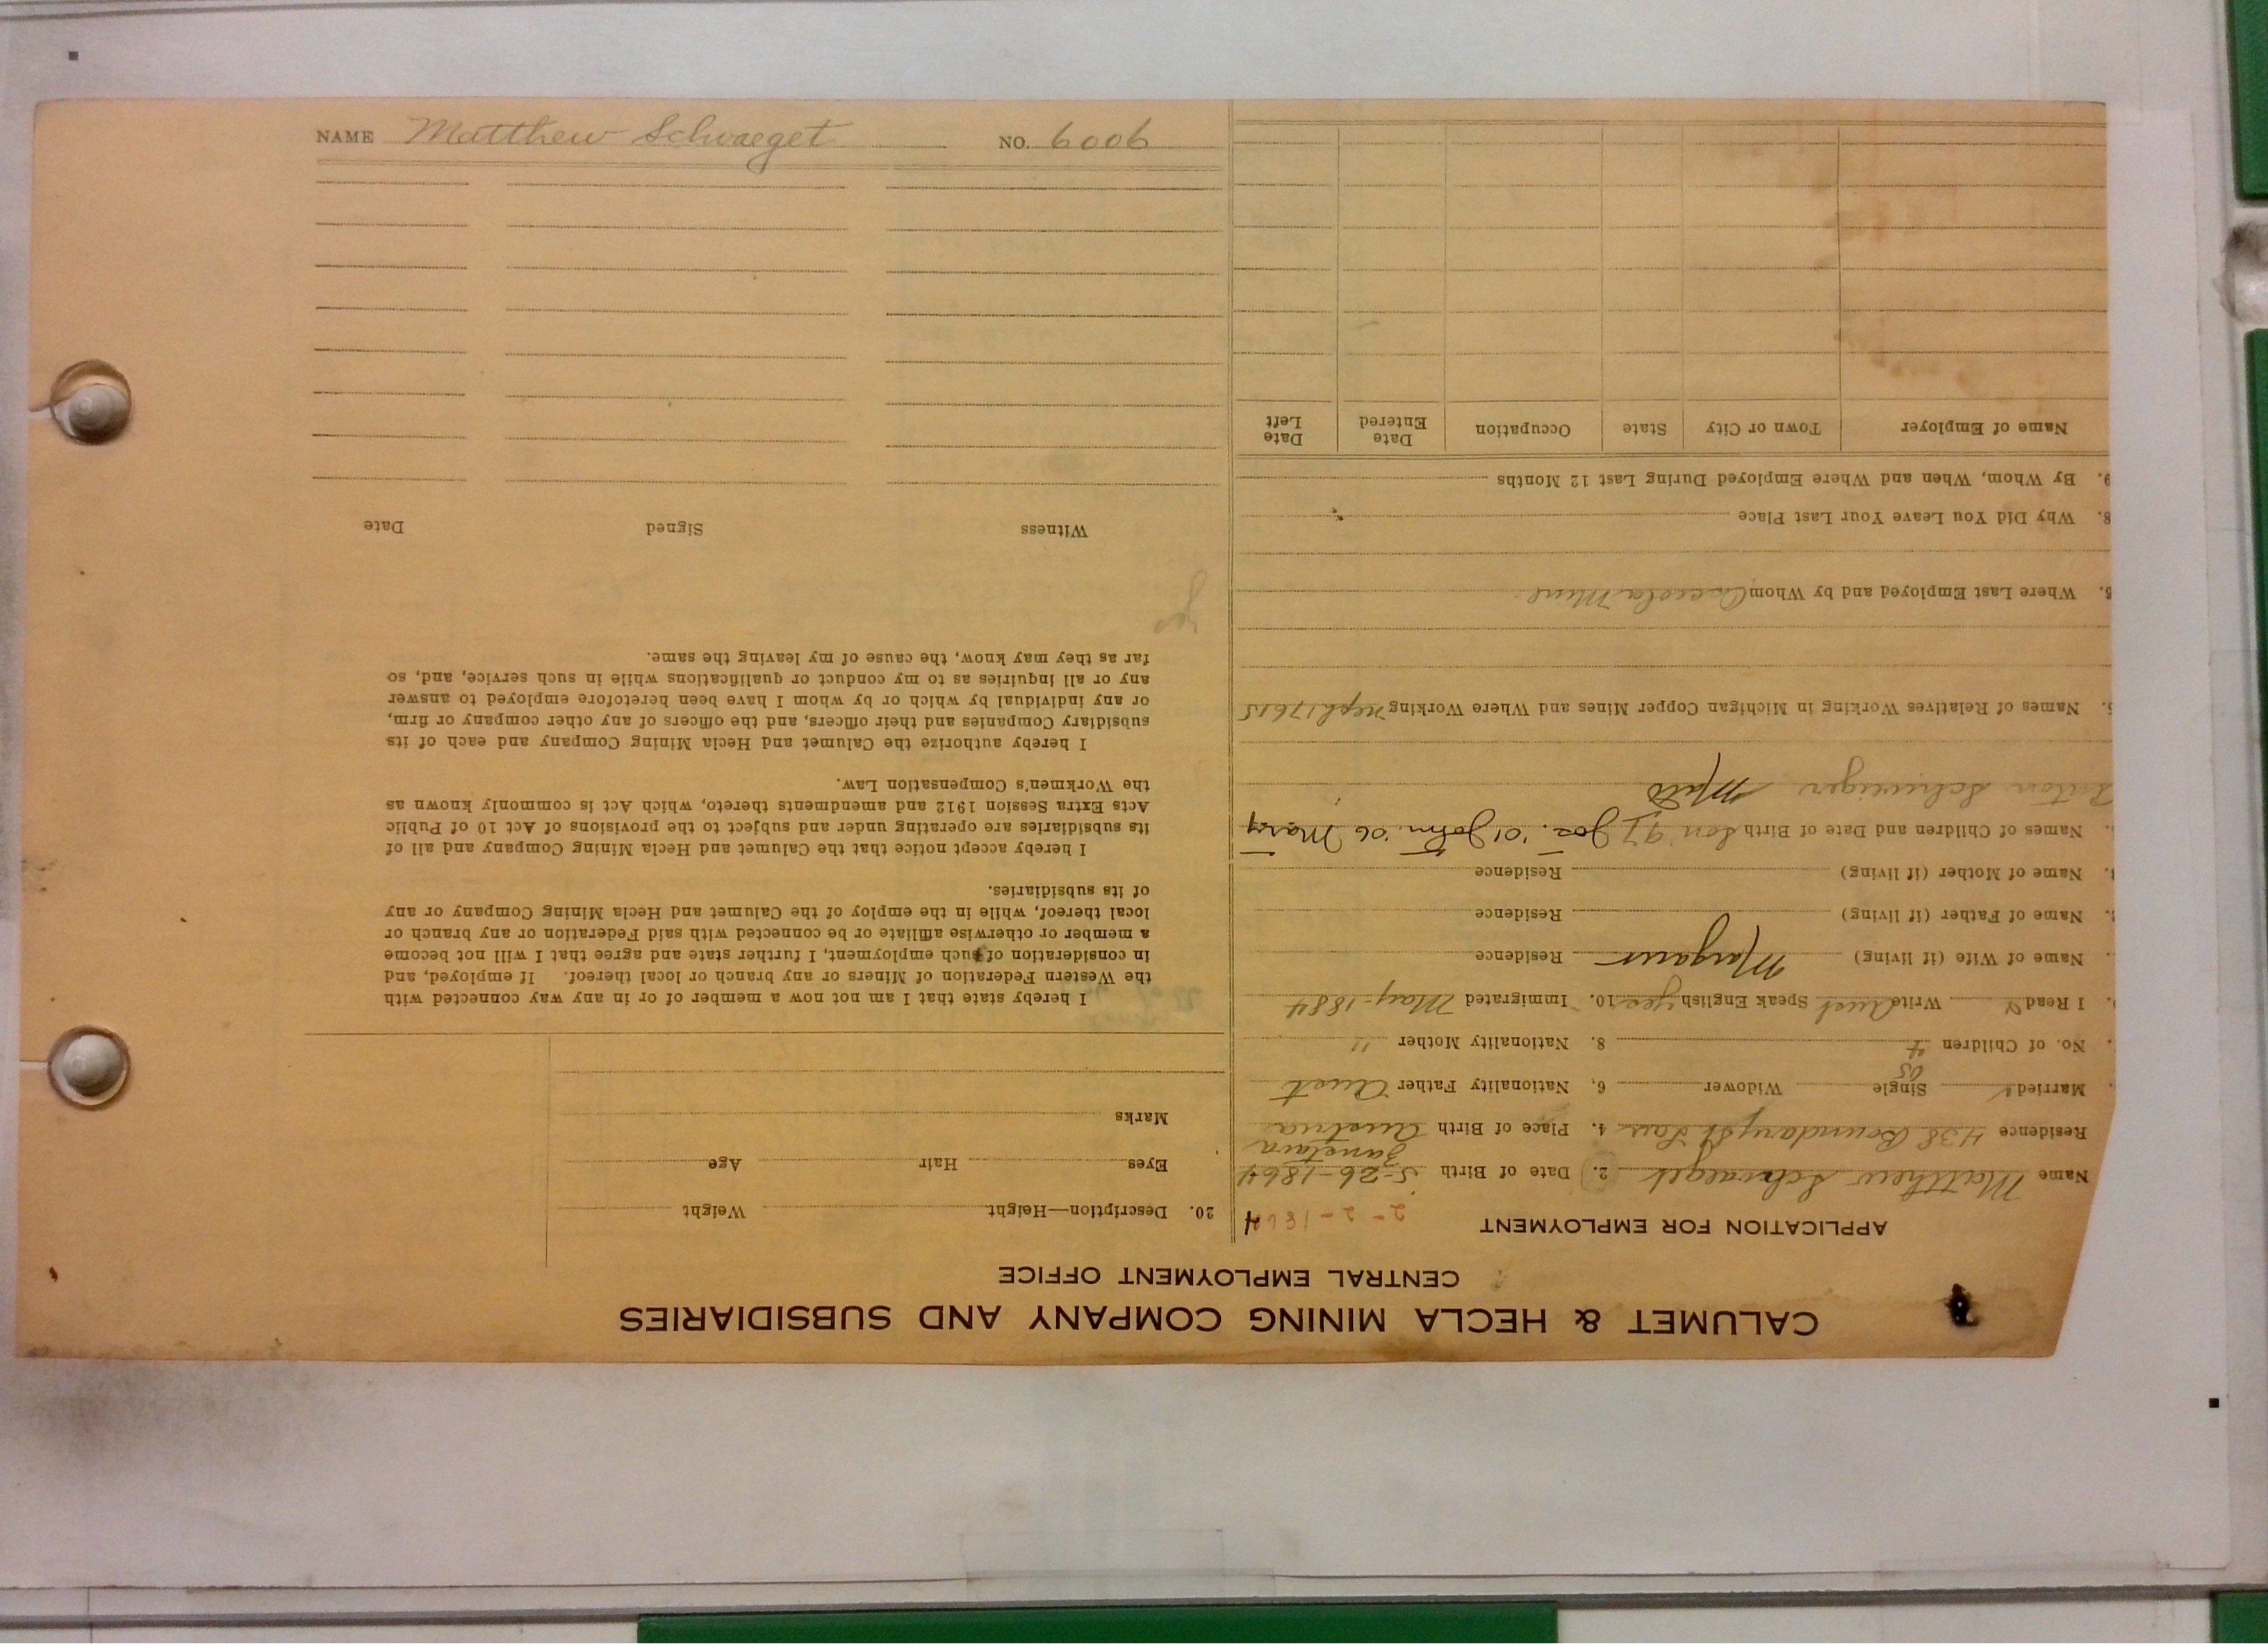 NAME Matthew Schwaeget NO. 6006
CALUMET & HECLA MINING COMPANY AND SUBSIDIARIES
CENTRAL EMPLOYMENT OFFICE
APPLICATION FOR EMPLOYMENT 2-2-1864
Name Matthew Schwaeget 2. Date of Birth 5-26-1864
Residence 438 Boundary St 4. Place of Birth Austria
Married Single Widower 6. Nationality Father Aust
05
No. of Children 4 8. Nationality Mother "
I Read Write Aust Speak English yes 10. Immigrated May-1884
Name of Wife (if living) Margaret Residence
Name of Father (if living) Residence
Name of Mother (if living) Residence
Names of Children and Date of Birth Son 97 Jos. '01 John '06 Mary
Anton Schweiger
5. Names of Relatives Working in Michigan Copper Mines and Where Working neph 17615
6. Where Last Employed and by Whom Osceola Mine.
8. Why Did You Leave Your Last Place
9. By Whom, When and Where Employed During Last 12 Months
Name of Employer Town or City State Occupation Date Entered Date Left
20. Description—Height Weight
Eyes Hair Age
Marks
I hereby state that I am not now a member of or in any way connected with
the Western Federation of Miners or any branch or local thereof. If employed, and
in consideration of such employment, I further state and agree that I will not become
a member or otherwise affiliate or be connected with said Federation or any branch or
local thereof, while in the employ of the Calumet and Hecla Mining Company or any
of its subsidiaries.
I hereby accept notice that the Calumet and Hecla Mining Company and all of
its subsidiaries are operating under and subject to the provisions of Act 10 of Public
Acts Extra Session 1912 and amendments thereto, which Act is commonly known as
the Workmen's Compensation Law.
I hereby authorize the Calumet and Hecla Mining Company and each of its
subsidiary Companies and their officers, and the officers of any other company or firm,
or any individual by which or by whom I have been heretofore employed to answer
any or all inquiries as to my conduct or qualifications while in such service, and, so
far as they may know, the cause of my leaving the same.
yes
Witness Signed Date